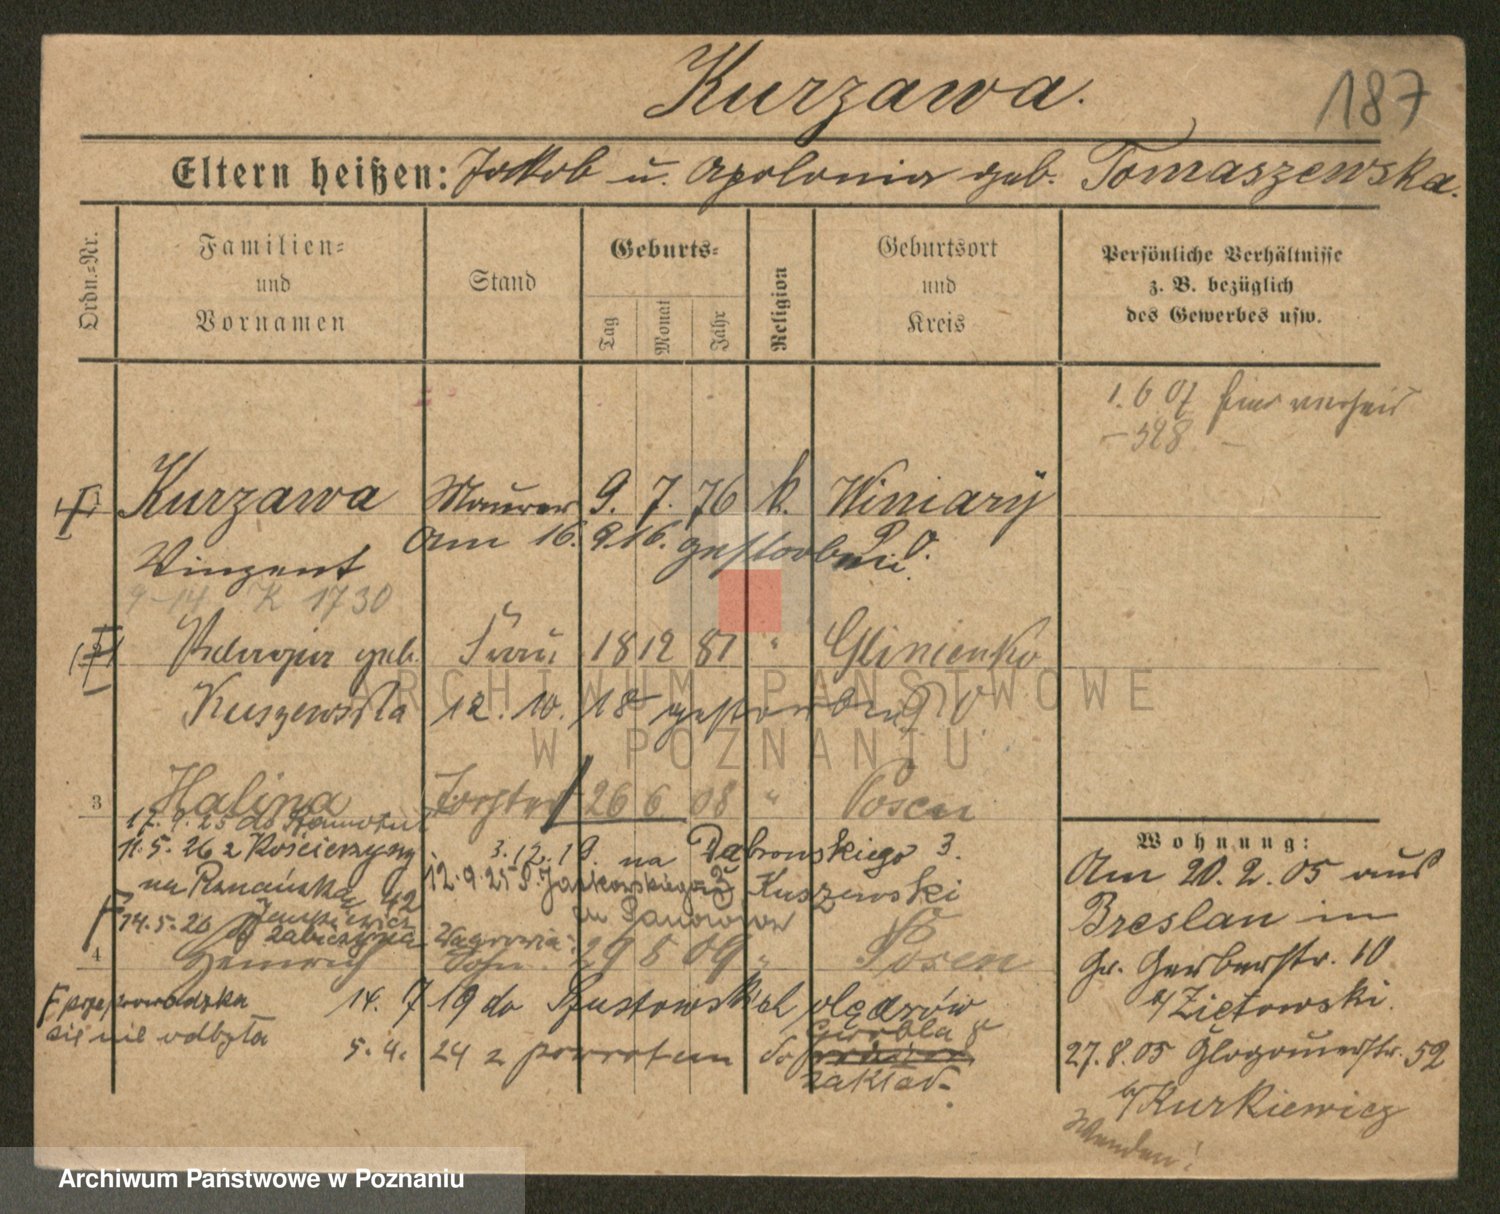 Kurzawa.
187
Eltern heißen: Jakob u. Apolonia geb. Tomaszewska.
Ordn.=Nr.
Familien=
und
Vornamen
Stand
Geburts=
Tag
Monat
Jahr
Religion
Geburtsort
und
Kreis
Persönliche Verhältnisse
z. B. bezüglich
des Gewerbes usw.
1. 6 07
- 528 -
Kurzawa Maurer 9. 7. 76 k. Winiary
Am 16. 9. 16. gestorben P. O.
Vinzent
9-14 K 1730
Pelagia geb. Frau 18 12 81 " Glinienko
Kuszewska 12. 10. 18 gestorben
3 Halina Tochter 26 6 08 " Posen
17. 9. 25 do
11. 5. 26 z Kościerzyny
3. 12. 19. na Dąbrowskiego 3.
na 42
12. 9. 25 Kuszewski
14. 5. 20
4 Heinrich Sohn 29 8 09 " Posen
F przeprowadzka
się nie odbyła
14. 7 19 do
5. 4. 24 z powrotem do
Garbla 8
zakład.
Wohnung:
Am 20. 2. 05 aus
Breslau in
Gr. Gerberstr. 10
b/ Ziętowski.
27. 8. 05 Glogauerstr. 52
b/ Kurkiewicz
Wenden!
ARCHIWUM PAŃSTWOWE
W POZNANIU
Archiwum Państwowe w Poznaniu